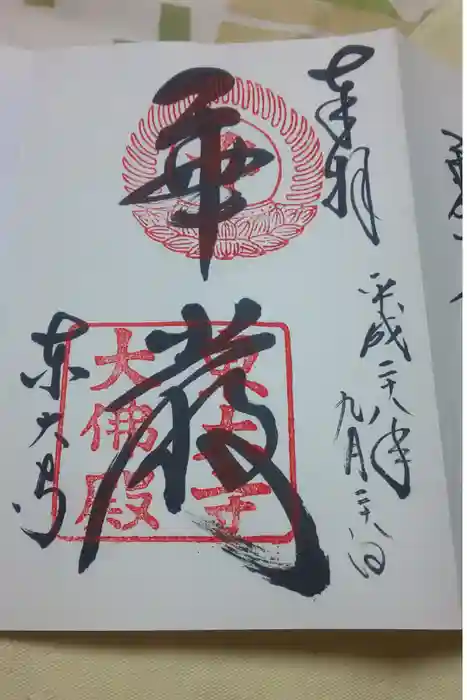 奉拝
平成二十八年
九月二十八日
華厳
東大寺
大佛殿
东大寺